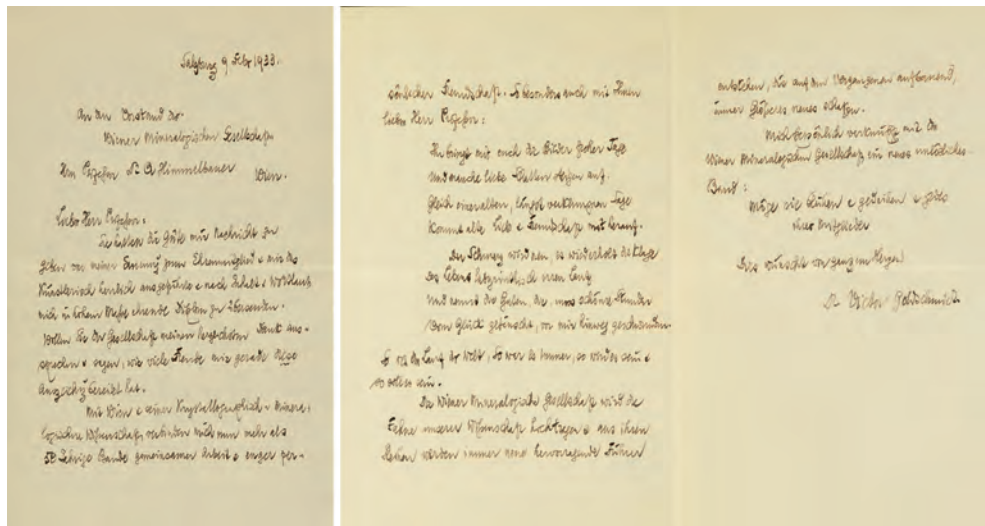 Salzburg 9 Febr 1933.
An den Vorstand der
Wiener Mineralogischen Gesellschaft
Herrn Professor Dr A Himmelbauer
Wien.
Lieber Herr Professor.
Sie hatten die Güte mir Nachricht zu
geben von meiner Ernennung zum Ehrenmitglied & mir das
künstlerisch herrlich ausgeführte & nach Inhalt & Wortlaut
mich in hohem Maße ehrende Diplom zu übersenden.
Wollen Sie der Gesellschaft meinen herzlichsten Dank aus-
sprechen & sagen, wie viele Freude mir gerade diese
Auszeichg bereitet hat.
Mit Wien & seiner Krystallographisch-Minera-
logischen Wissenschaft verbinden mich nun mehr als
50 Jährige Bande gemeinsamer Arbeit & enger per-
sönlicher Freundschaft. So besonders auch mit Ihnen
lieber Herr Professor:
Ihr bringt mit euch die Bilder froher Tage
Und manche liebe Schatten steigen auf.
Gleich einer alten, halbverklungnen Sage
Kommt alte Lieb & Freundschaft mit herauf.
Der Schmerz wird neu, es wiederholt die Klage
Des Lebens labyrinthisch irren Lauf
Und nennt die Guten, die, um schöne Stunden
Vom Glück getäuscht, vor mir hinweg geschwunden.
So ist der Lauf der Welt, So war es immer, so wird es sein &
so soll es sein.
Die Wiener Mineralogische Gesellschaft wird die
Fahne unserer Wissenschaft hochtragen & aus ihren
Reihen werden immer neue hervorragende Führer
entstehen, die auf dem Vergangenen aufbauend,
immer Größeres neues schaffen.
Mich persönlich verknüpft mit der
Wiener Mineralogischen Gesellschaft ein neues unlösliches
Band:
Möge sie blühen & gedeihen &
ihrer Mitglieder
Dies wünscht von ganzem Herzen
Dr Victor Goldschmidt